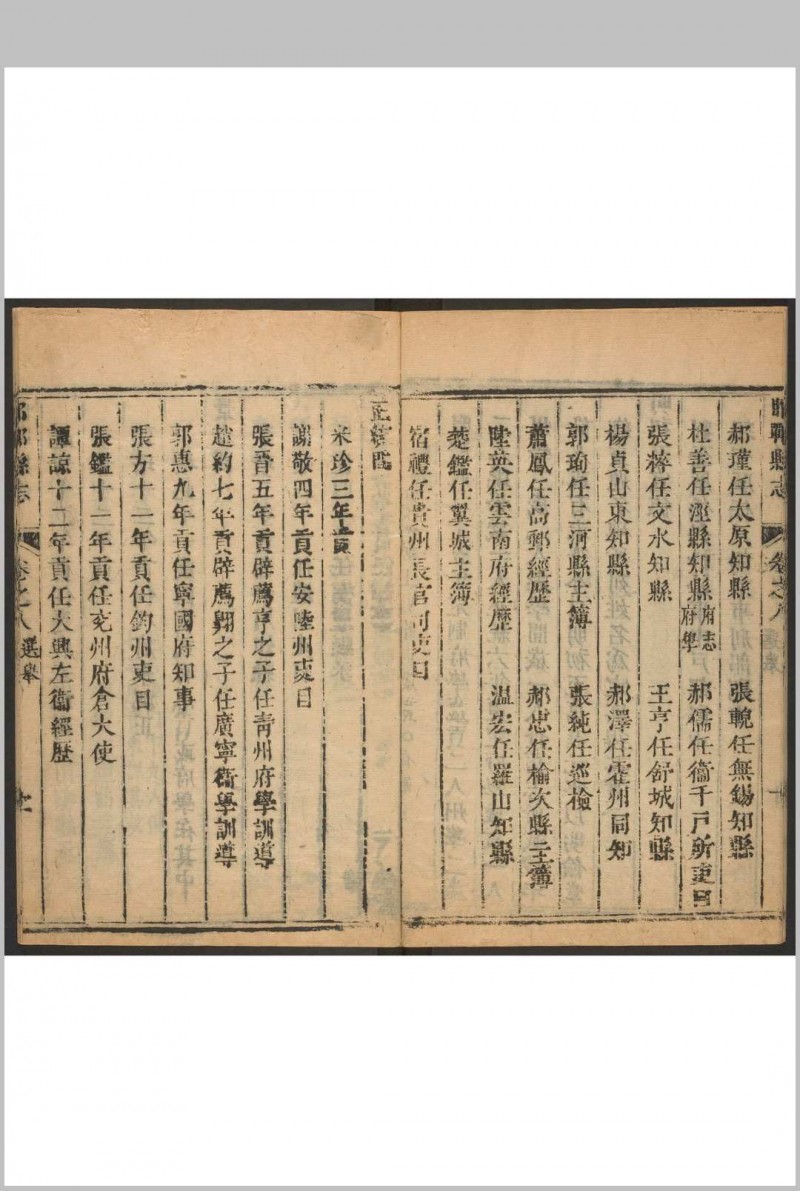 邯鄲縣志 卷之八
郝瑾任太原知縣 張輗任無錫知縣
杜善任涇縣知縣府志府學 郝儒任衞千戶所吏目
張幹任文水知縣 王亨任舒城知縣
楊貞山東知縣 郝澤任霍州同知
郭珣任三河縣主簿 張純任巡檢
蕭鳳任高郵經歷 郝忠任榆次縣主簿
陸英任雲南府經歷 溫宏任羅山知縣
楚鑑任翼城主簿
宿禮任貴州長官司吏目
正統間
米珍三年貢
謝敬四年貢任安陸州吏目
張晉五年貢辟薦亨之子任青州府學訓導
趙約七年貢辟薦翱之子任廣寧衞學訓導
郭惠九年貢任寧國府知事
張方十一年貢任鈞州吏目
張鑑十一年貢任兗州府倉大使
譚諒十二年貢任大興左衞經歷
邯鄲縣志 卷之八 選舉